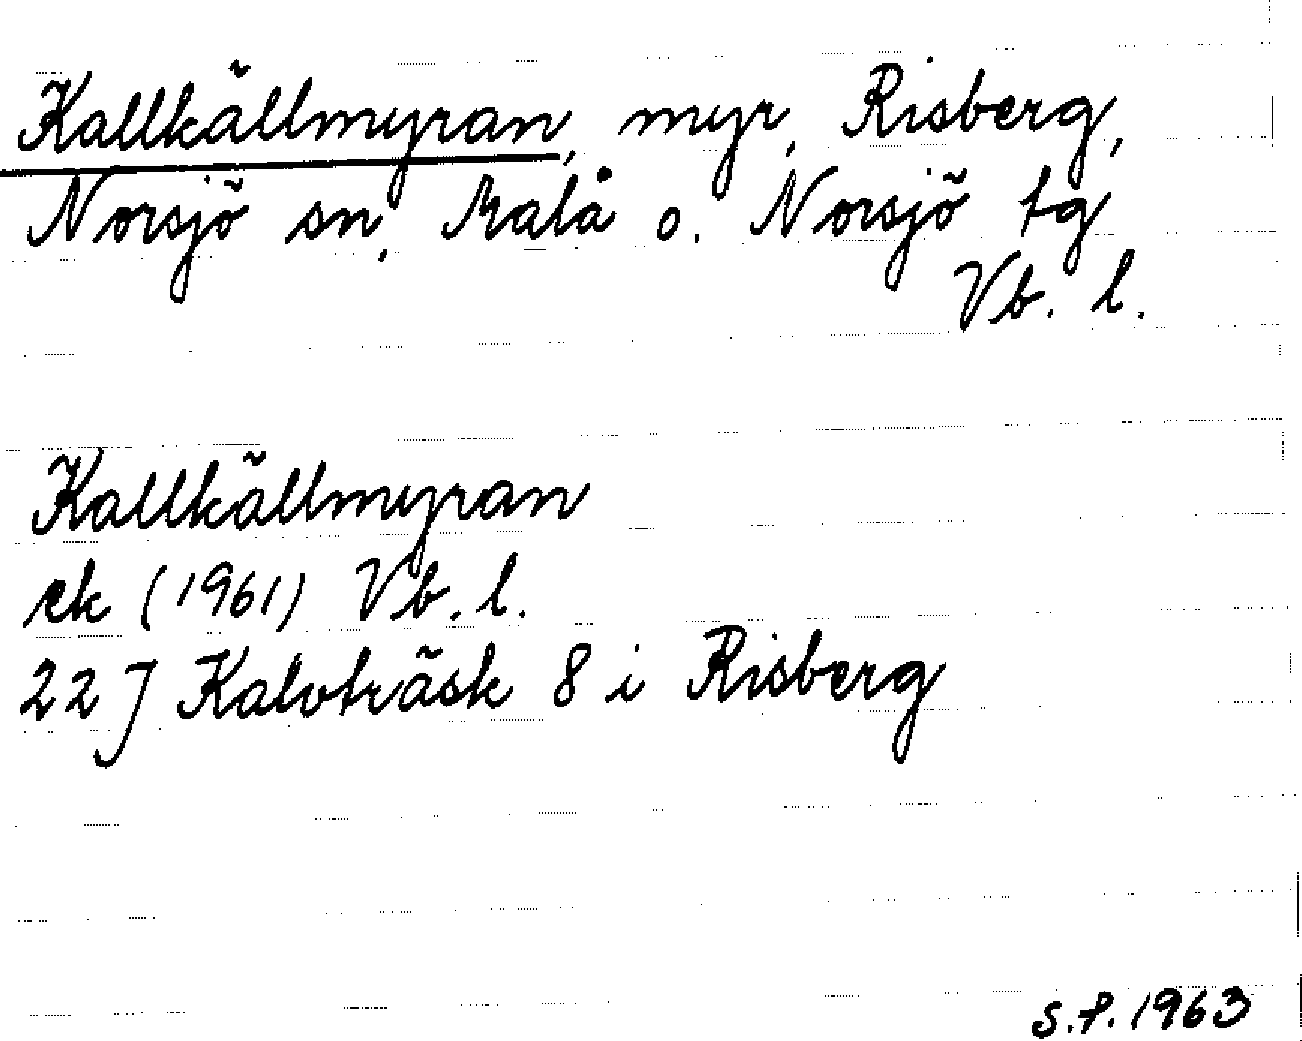 Kallkällmyran, myr, Risberg,
Norsjö sn, Malå o. Norsjö tg
Vb. l.
Kallkällmyran
ek (1961) Vb. l.
22 J Kalvträsk 8 i Risberg
S.P. 1963